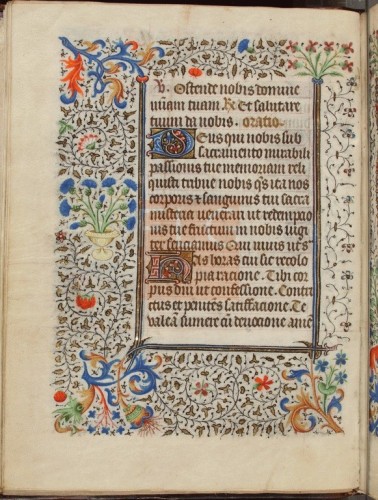 V. Ostende nobis domine
miam tuam. R Et salutare
tuum da nobis. oratio.
Deus qui nobis sub
sacramento mirabili
passionis tue memoriam reli
quisti tribue nobis qs ita nos
corporis & sanguinis tui sacra
misteria venerari ut redemptio
nis tue fructum in nobis iugi
ter senciamus Qui viuis et
Has horas cui sic recolo
pia racione. Tibi cor
pus dni ut confessione. Contri
ctus et penites satisfacione. Te
valeā sumere cū deuocione amē